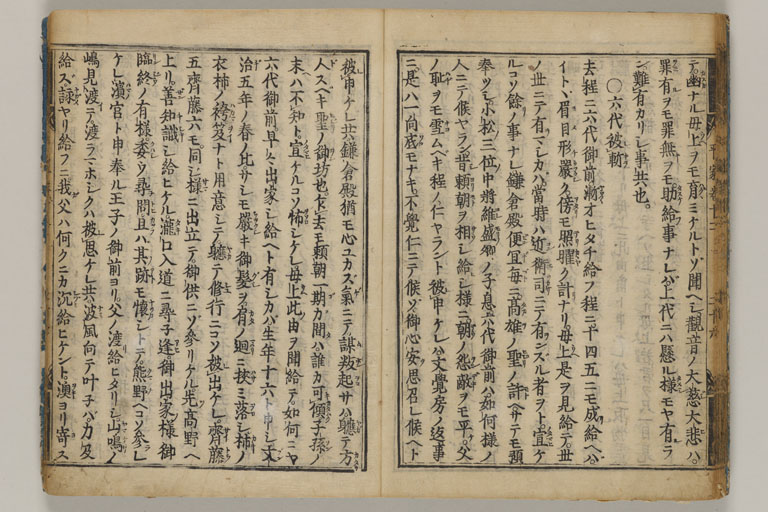 テ幽ナル母上ヲモ育ミケルトソ聞ヘシ観音ノ大慈大悲ハ
罪有ヲモ罪無ヲモ助給事ナレバ上代ニハ懸ル様モヤ有ラ
ン難有カリシ事共也
〇六代被斬
去程ニ六代御前漸オヒタチ給フ程ニ十四五ニモ成給ヘハ
イトヾ眉目形嚴ク傍モ照曜ク計ナリ母上是ヲ見給テ世
ノ世ニテ有マシカバ當時ハ近衛司ニテ有ンズル者ヲト宣ケ
ルコソ餘ノ事ナレ鎌倉殿便宜毎ニ高雄ノ聖ノ許ヘサテモ預
奉ツシ小松三位中将維盛卿ノ子息六代御前ハ如何様ノ
人ニテ候ヤラン昔頼朝ヲ相シ給シ様ニ朝ノ怨敵ヲモ平ゲ父
ノ恥ヲモ雪ムヘキ程ノ仁ヤラント被申ケレバ文覺房ノ返事
ニ是ハ一向底モナキ不覺仁ニテ候ゾ御心安思召シ候ヘト
被申ケレ共鎌倉殿猶モ心ユカズ氣ニテ謀叛起サハ軈テ方
人スヘキ聖ノ御坊也但去モ頼朝一期カ間ハ誰カ可傾子孫ノ
末ハ不知ト宣ケルコソ怖シケレ母上此由ヲ聞給テ如何ニヤ
六代御前早々出家シ給ヘト有シカバ生年十六ト申シ文
治五年ノ春ノ比サシモ嚴キ御髮ヲ肩ノ廻ニ挾ミ落シ柿ノ
衣柿ノ袴笈ナト用意シテ軈テ修行ニコソ被出ケレ齊藤
五齊藤六モ同シ様ニ出立テ御供ニゾ參リケル先高野ヘ
上リ善知識シ給ヒケル瀧口入道ニ尋子逢御出家様御
臨終ノ有様委ウ尋問且ハ其跡モ懷シトテ熊野ヘコソ參ラレ
ケレ濱宮ト申奉ル王子ノ御前ヨリ父ノ渡給ヒタリシ山鳴ノ
嶋見渡テ渡ラマホシクハ被思ケレ共波風向テ叶子バ力及
給ズ詠ヤリ給フニ我父ハ何クニカ沉給ヒケント澳ヨリ寄ス